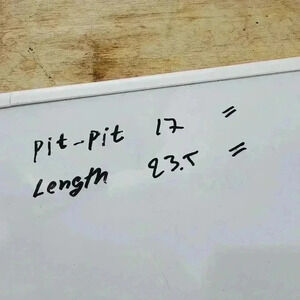 Pit-Pit 17 "
Length 23.5 "